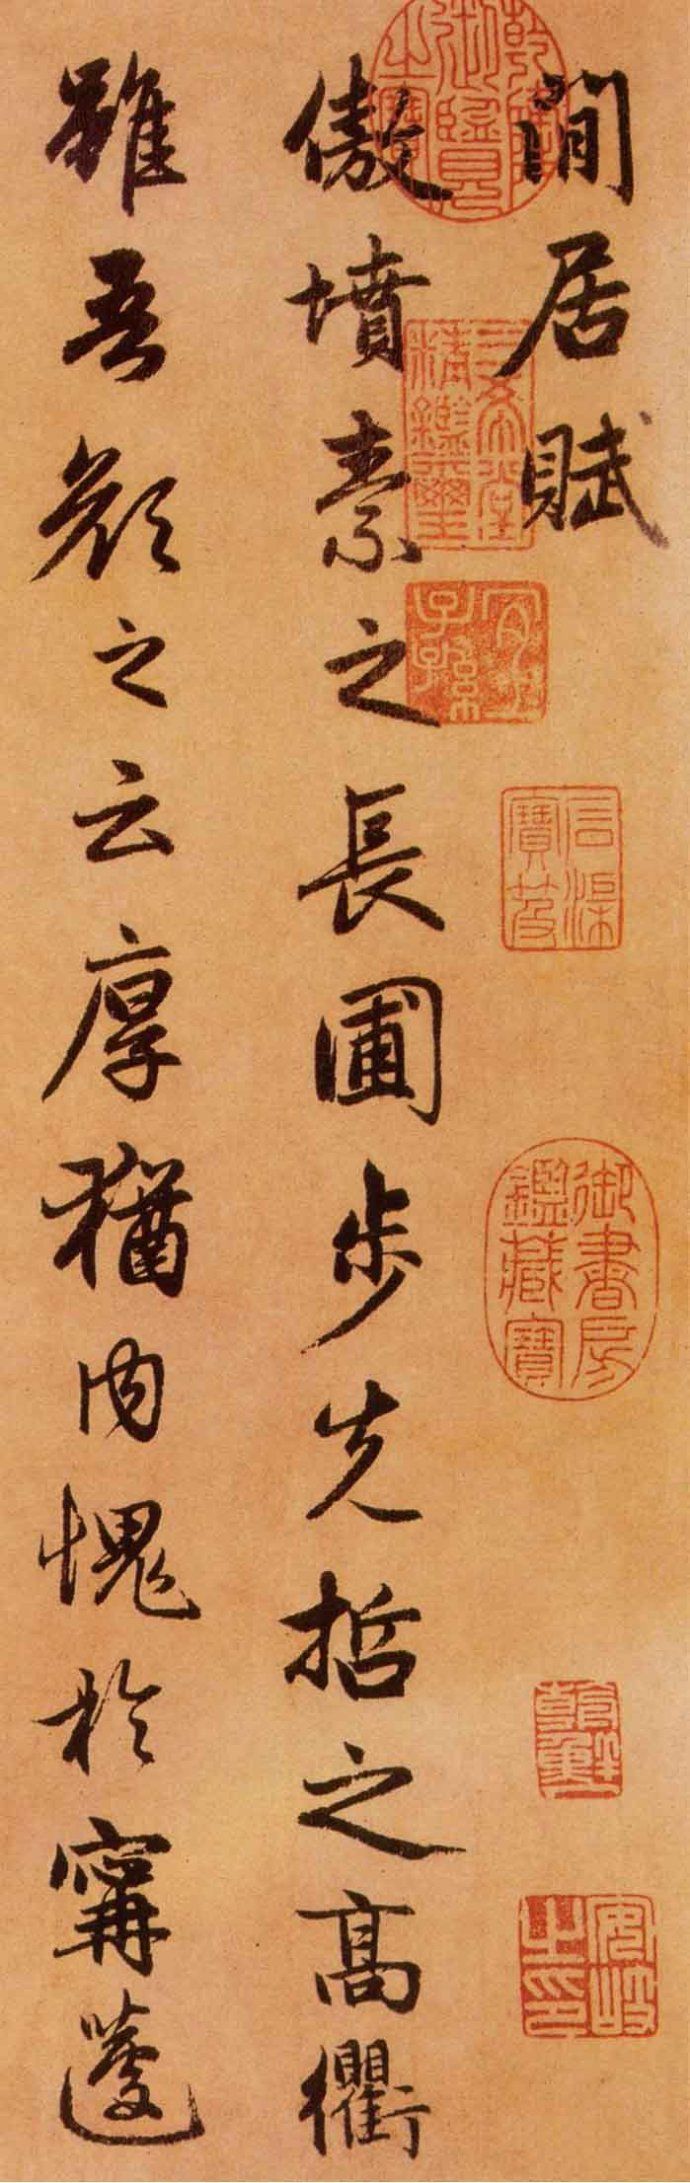 閒居賦
傲墳素之長圃步先哲之高衢
雖吾顏之云厚猶内愧於甯蘧
乾隆御覽之寶
三希堂精鑑璽
宜子孫
石渠寶笈
御書房鑑藏寶
安岐之印